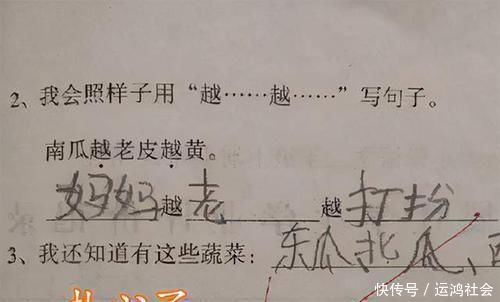 2、我会照样子用“越……越……”写句子。
南瓜越老皮越黄。
妈妈越老 越打扮
3、我还知道有这些蔬菜：东瓜、北瓜、
快传号／运鸿社会